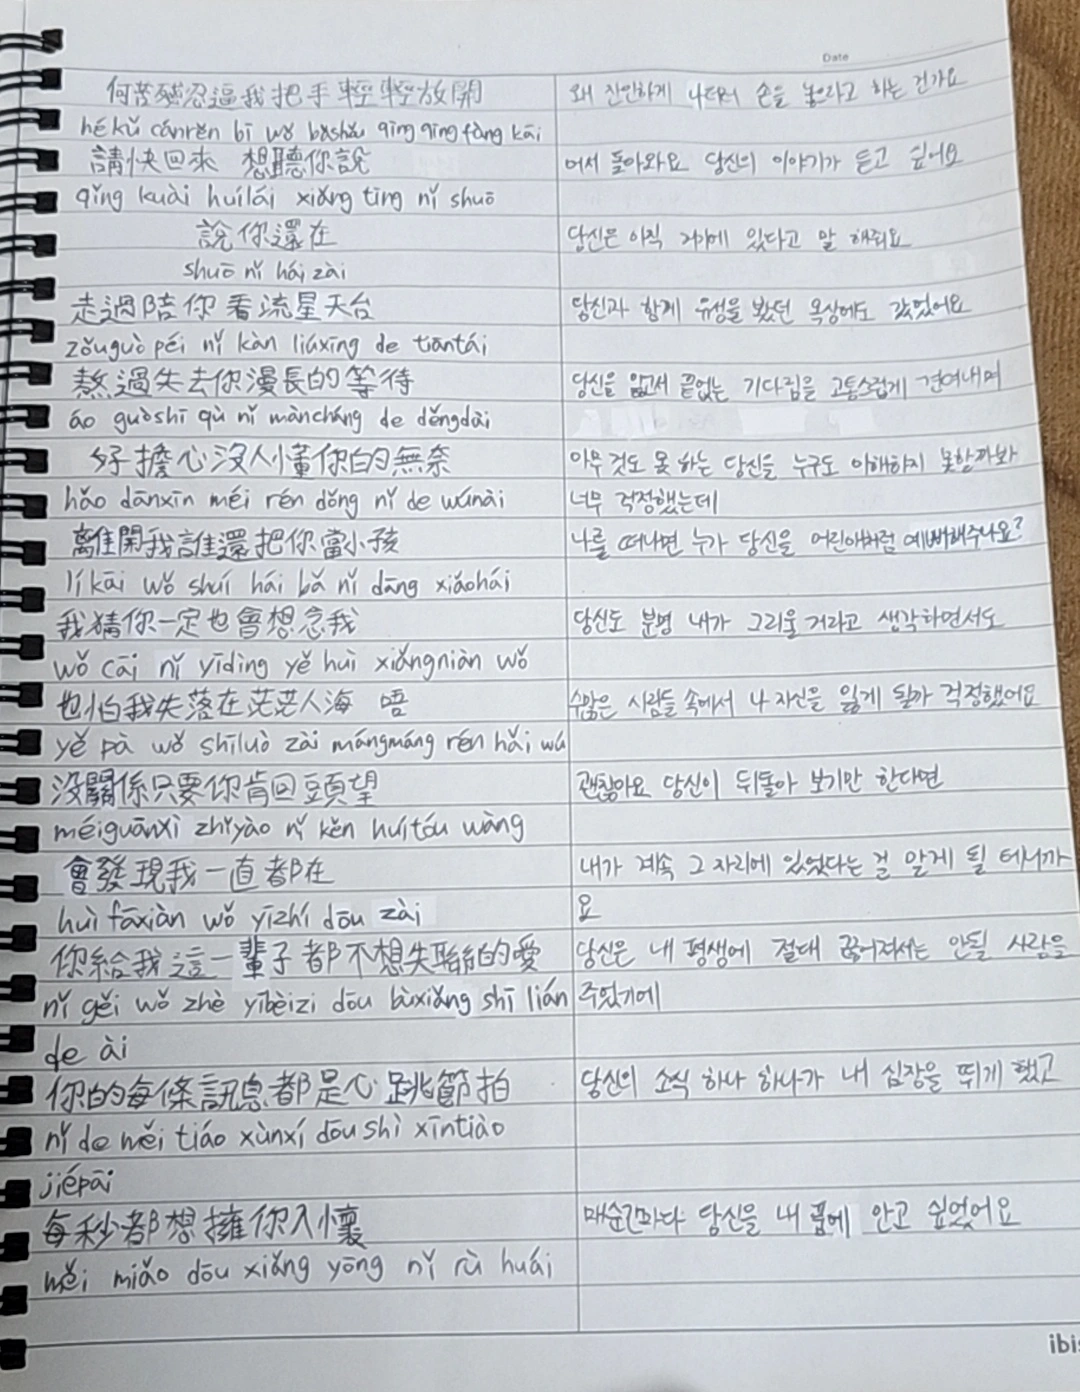 Date
何苦殘忍逼我把手輕輕放開
왜 잔인하게 나더러 손을 놓으라고 하는 건가요
hékǔ cánrěn bī wǒ bǎshǒu qīng qīng fàng kāi
請快回來 想聽你說
어서 돌아와요 당신의 이야기가 듣고 싶어요
qǐng kuài huílái xiǎng tīng nǐ shuō
說你還在
당신은 아직 거기에 있다고 말 해줘요
shuō nǐ hái zài
走過陪你看流星天台
당신과 함께 유성을 봤던 옥상에도 갔었어요
zǒuguò péi nǐ kàn liúxīng de tiāntái
熬過失去你漫長的等待
당신을 잃고서 끝없는 기다림을 고통스럽게 견뎌내며
áo guòshī qù nǐ màncháng de děngdài
好擔心沒人懂你的無奈
아무 것도 못 하는 당신을 누구도 이해하지 못할까봐
hǎo dānxīn méi rén dǒng nǐ de wúnài
너무 걱정했는데
離開我誰還把你當小孩
나를 떠나면 누가 당신을 어린애처럼 예뻐해주나요?
líkāi wǒ shuí hái bǎ nǐ dāng xiǎohái
我猜你一定也會想念我
당신도 분명 내가 그리울 거라고 생각하면서도
wǒ cāi nǐ yīdìng yě huì xiǎngniàn wǒ
也怕我失落在茫茫人海 唔
수많은 사람들 속에서 나 자신을 잃게 될까 걱정했어요
yě pà wǒ shīluò zài mángmáng rén hǎi wú
沒關係只要你肯回頭望
괜찮아요 당신이 뒤돌아 보기만 한다면
méiguānxì zhǐyào nǐ kěn huítóu wàng
會發現我一直都在
내가 계속 그 자리에 있었다는 걸 알게 될 테니까
huì fāxiàn wǒ yīzhí dōu zài
요
你給我這一輩子都不想失聯的愛
당신은 내 평생에 절대 끊어져서는 안될 사람을
nǐ gěi wǒ zhè yībèizi dōu bùxiǎng shī lián
주었기에
de ài
你的每條訊息都是心跳節拍
당신의 소식 하나 하나가 내 심장을 뛰게 했고
nǐ de měi tiáo xùnxí dōu shì xīntiào
jiépāi
每秒都想擁你入懷
매순간마다 당신을 내 품에 안고 싶었어요
měi miǎo dōu xiǎng yōng nǐ rù huái